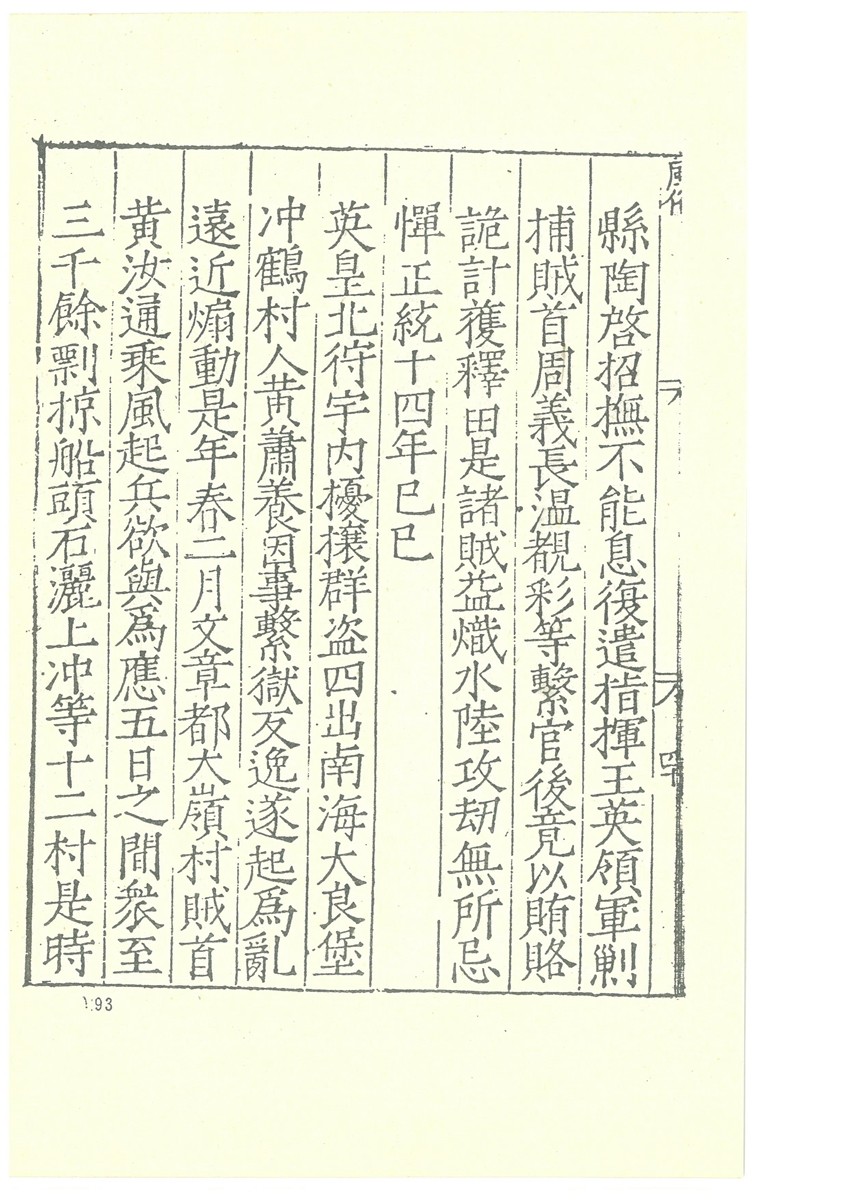 縣陶啓招撫不能息復遣指揮王英領軍剿
捕賊首周義長溫觀彩等繫官後竟以賄賂
詭計獲釋由是諸賊益熾水陸攻刼無所忌
憚正統十四年已巳
英皇北狩宇内擾攘群盗四出南海大良堡
冲鶴村人黄蕭養因事繫獄反逸遂起爲亂
遠近煽動是年春二月文章都大嶺村賊首
黄汝通乘風起兵欲與爲應五日之間衆至
三千餘剽掠船頭石灑上冲等十二村是時
193